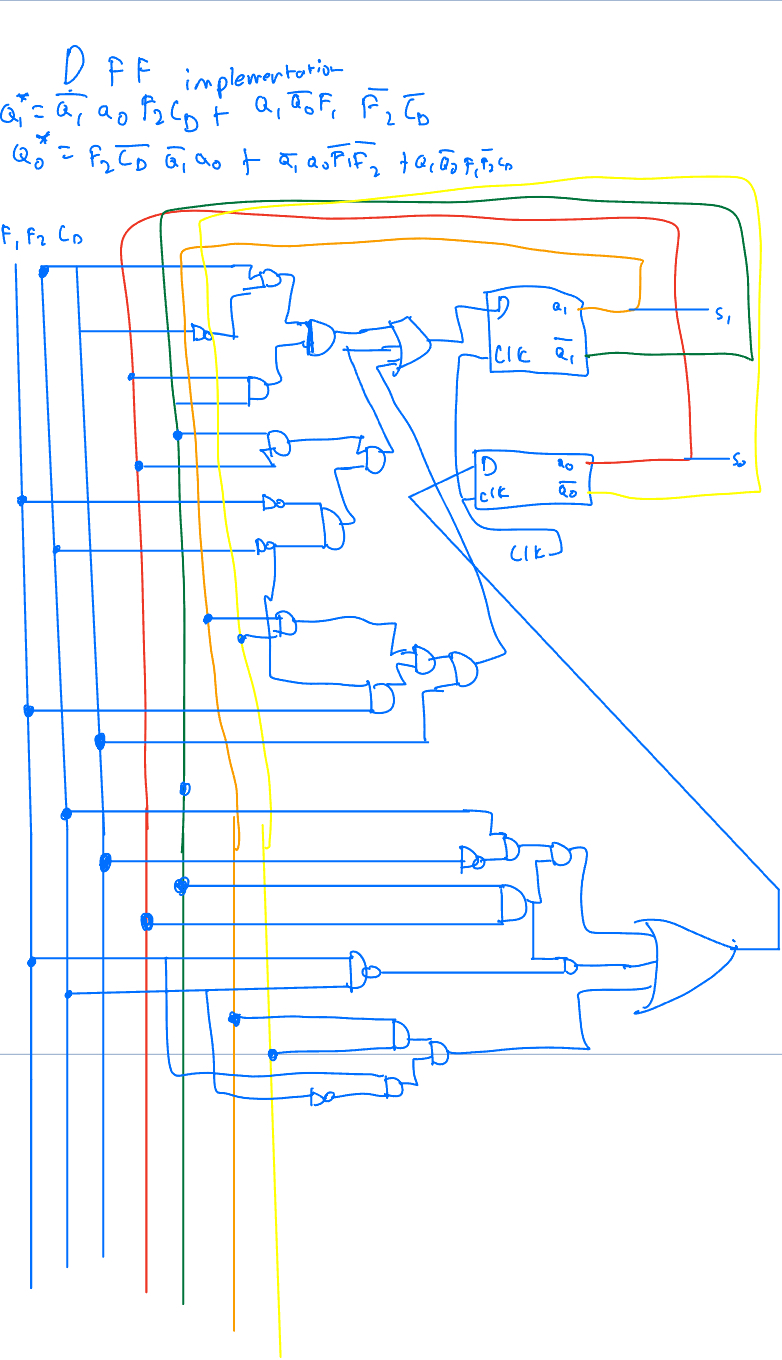 D FF implementation
Q₁* = Q̅₁ Q₀ F₂ C_D + Q₁ Q̅₀ F₁ F̅₂ C̅_D
Q₀* = F₂ C̅_D Q̅₁ Q₀ + Q̅₁ Q₀ F̅₁ F̅₂ + Q₁ Q̅₀ F₁ F̅₂ C_D
F₁ F₂ C_D
D Q₁
S₁
CLK Q̅₁
D Q₀
S₀
CLK Q̅₀
CLK